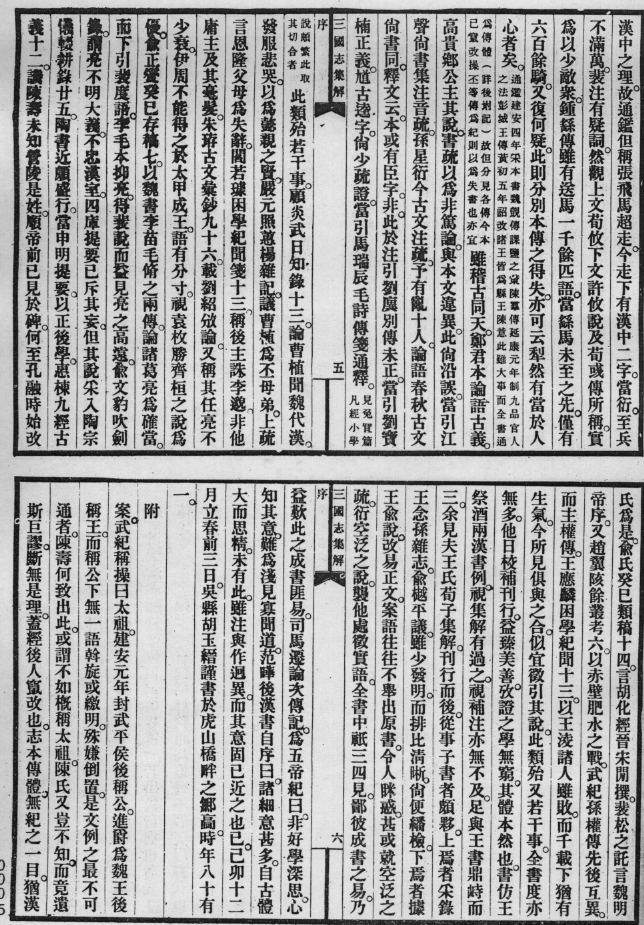 漢中之理。故通鑑但稱張飛馬超走。今走下有漢中二字。當衍。至兵
不滿萬。裴注有疑詞。然觀上文荀攸下文許攸說及荀彧傳所稱。實
爲以少敵衆。鍾繇傳雖有送馬一千餘匹語。當繇馬未至之先。僅有
六百餘騎。又復何疑。此則分別本傳之得失。亦可云犁然有當於人
心者矣。
雖稽古同天。鄭君本論語古義。
高貴鄉公主其說。書疏以爲非篤論。與本文違異。此尚沿誤。當引江
聲尚書集注音疏。孫星衍今古文注疏。予有亂十人。論語春秋古文
尚書同。釋文云。本或有臣字非。此於注引劉廙別傳未正。當引劉寶
楠正義。馗古逵字。尙少疏證。當引馬瑞辰毛詩傳箋通釋。見兔罝篇凡經小學
序
三國志集解
五
說頗繁此取其切合者
此類殆若干事。顧炎武日知錄十三。論曹植聞魏代漢。
發服悲哭。以爲懿親之賢。嚴元照蕙櫋雜記。議曹植爲丕母弟。上疏
言恩隆父母爲失辭。閻若璩困學紀聞箋十三。稱後主誅李邈。非他
庸主及其毫髮。朱珔古文彙鈔九十六。載劉紹攽論。又稱其任亮不
少衰。伊周不能得之於太甲成王。語有分寸。視袁枚勝齊桓之說爲
優。兪正燮癸巳存稿七。以魏書李苗毛脩之兩傳論諸葛亮爲確當。
而下引裴度語。李毛本抑亮。得裴說而益見亮之高遠。兪文豹吹劍
錄。謂亮不明大義。不忠漢室。四庫提要已斥其妄。但其說采入陶宗
儀輟耕錄廿五。陶書近頗盛行。當申明提要。以正後學。惠棟九經古
義十二。譏陳壽未知管陵是姓。順帝前已見於碑。何至孔融時始改
氏爲是。兪氏癸巳類稿十四。言胡化經晉宋間撰。裴松之託言魏明
帝序。又趙翼陔餘叢考六。以赤壁肥水之戰。武紀孫權傳先後互異。
而主權傳。王應麟困學紀聞十三。以王淩諸人雖敗。而千載下猶有
生氣。今所見俱與之合。似宜徵引其說。此類殆又若干事。全書度亦
無多。他日校補刊行。益臻美善。攷證之學無窮。其體本然也。書仿王
祭酒兩漢書例。視集解有過之。視補注亦無不及。足與王書鼎峙。而
三。余見夫王氏荀子集解刊行而後。從事子書者頗夥。上焉者采錄
王念孫雜志。兪樾平議。雖少發明。而排比淸晰。尙便繙檢。下焉者據
王兪說改易正文。案語往往不舉出原書。令人眯惑。甚或就空泛之
疏。衍空泛之說。襲他處徵實語。全書中祇三四見。鄙彼成書之易。乃
序
三國志集解
六
益歎此之成書匪易。司馬遷論次傳記。爲五帝紀曰。非好學深思。心
知其意。難爲淺見寡聞道。范曄後漢書自序曰。諸細意甚多。自古體
大而思精。未有此。雖注與作迥異。而其意固已近之也已。己卯十二
月立春前三日。吳縣胡玉縉謹書於虎山橋畔之鄦廎。時年八十有
一。
附
案武紀。稱操曰太祖。建安元年。封武平侯後。稱公。進爵爲魏王後。
稱王。而稱公下。無一語斡旋。或繳明。殊嫌倒置。是文例之最不可
通者。陳壽何致出此。或謂不如槪稱太祖。陳氏又豈不知。而竟遺
斯叵謬。斷無是理。蓋經後人竄改也。志本傳體無紀之一目。猶漢